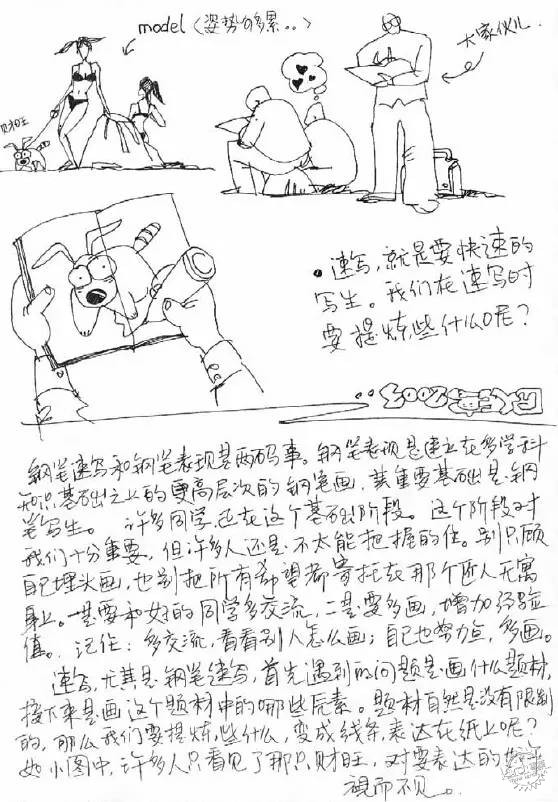 model (姿势多累..)
大家伙儿
财旺
• 速写,就是要快速的
写生。我们在速写时
要提炼些什么呢?
2003
钢笔速写和钢笔表现是两码事。钢笔表现是建立在多学科
知识基础之上的更高层次的钢笔画,其重要基础是钢
笔写生。 许多同学还在这个基础阶段。这个阶段对
我们十分重要,但许多人还是不太能把握的住。别只顾
自己埋头画,也别把所有希望都寄托在那个匠人无寓
身上。一是要和好的同学多交流,二是要多画,增加经验
值。 记住:多交流,看看别人怎么画;自己也努力点,多画。
速写,尤其是钢笔速写,首先遇到的问题是画什么题材,
接下来是画这个题材中的哪些元素。题材自然是没有限制
的,那么我们要提炼些什么,变成线条,表达在纸上呢?
如小图中,许多人只看见了那只财旺,对要表达的
视而不见。